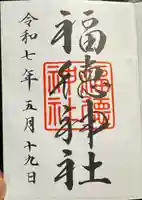 福徳神社
福徳神社
福徳
神社
令和七年五月十九日